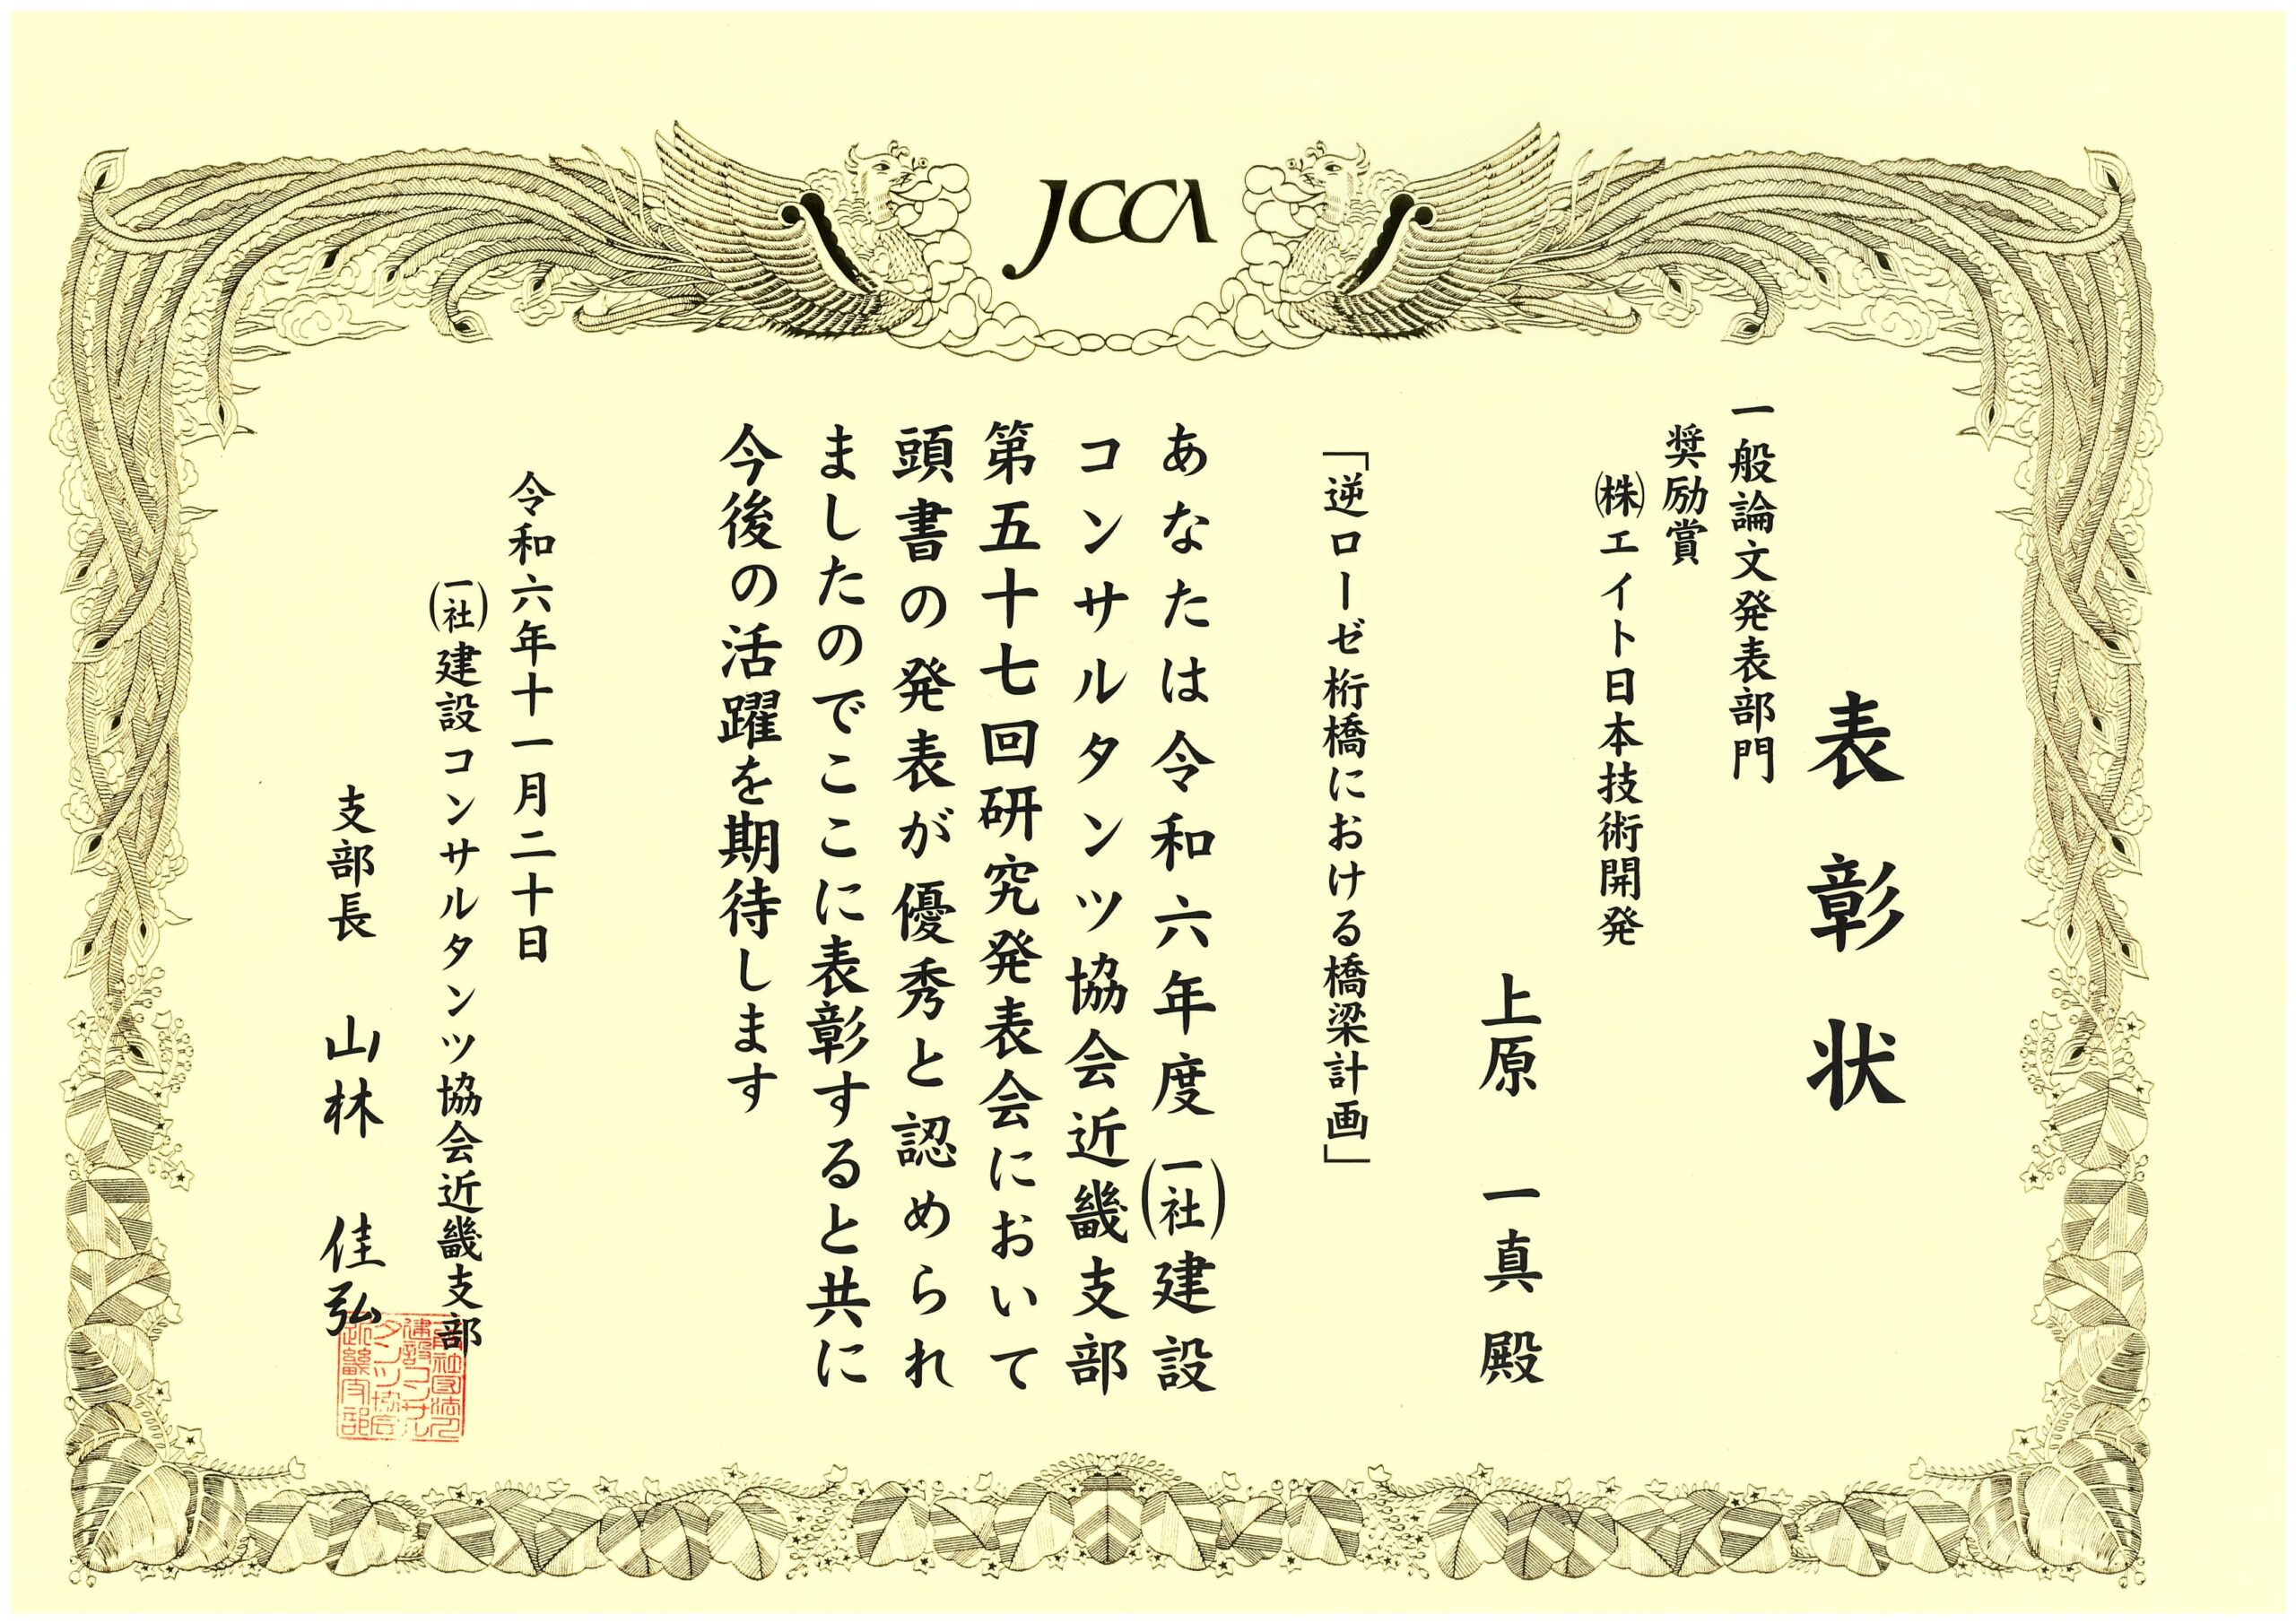 JCCA
表彰状
一般論文発表部門
奨励賞
㈱エイト日本技術開発
上原 一真 殿
「逆ローゼ桁橋における橋梁計画」
あなたは令和六年度(一社)建設
コンサルタンツ協会近畿支部
第五十七回研究発表会において
頭書の発表が優秀と認められ
ましたのでここに表彰すると共に
今後の活躍を期待します
令和六年十一月二十日
(一社)建設コンサルタンツ協会近畿支部
支部長 山林 佳弘
一般社団法人
建設コンサル
タンツ協会
近畿支部